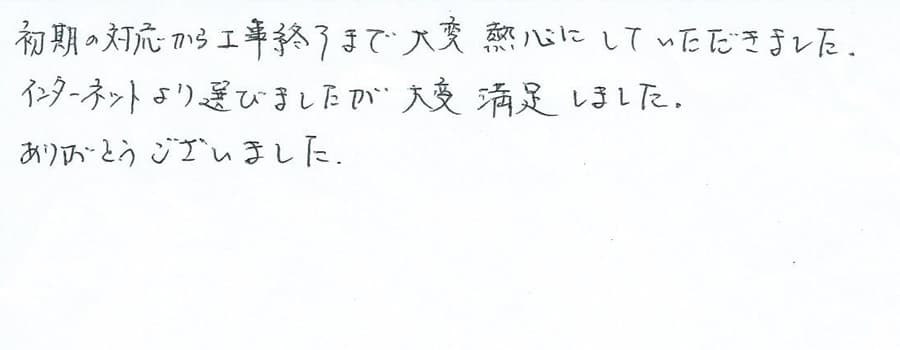 初期の対応から工事終了まで大変熱心にしていただきました.
インターネットより選びましたが大変満足しました.
ありがとうございました.